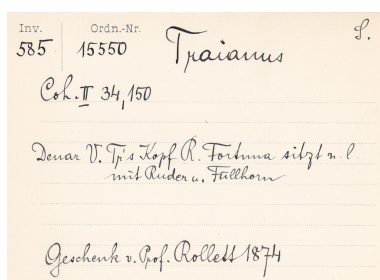 Inv. Ordn.-Nr. S.
585 15550 Traianus
Coh. II 34,150
Denar V. Tr's Kopf R. Fortuna sitzt n. l.
mit Ruder u. Füllhorn
Geschenk v. Prof. Rollett 1874